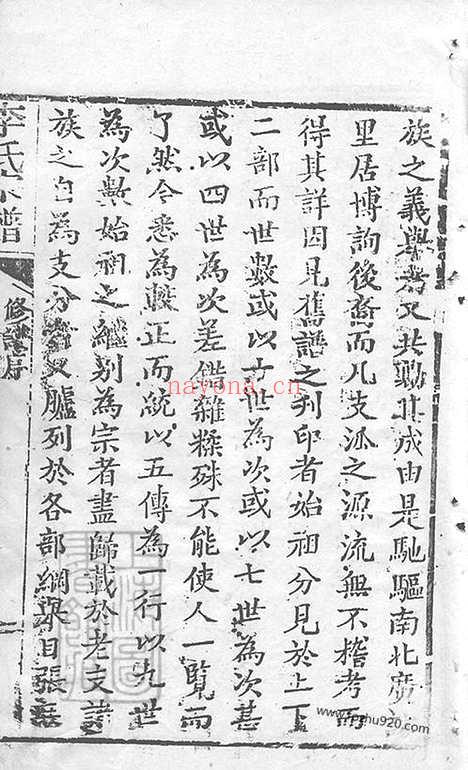 族之義舉者又共勷其成由是馳驅南北廣
里居博詢後裔而凡支派之源流無不稽考而
得其詳因見舊譜之刊印者始祖分見於上下
二部而世數或以十世為次或以七世為次甚
或以四世為次差僭雜糅殊不能使人一覽而
了然今悉為釐正而統以五傳為一行以九世
為次與始祖之繼別為宗者盡歸載於老支譜
族之自為支分者又臚列於各部綱舉目張
李氏宗譜
修譜序
nayona.cn
www.pzhu920.com